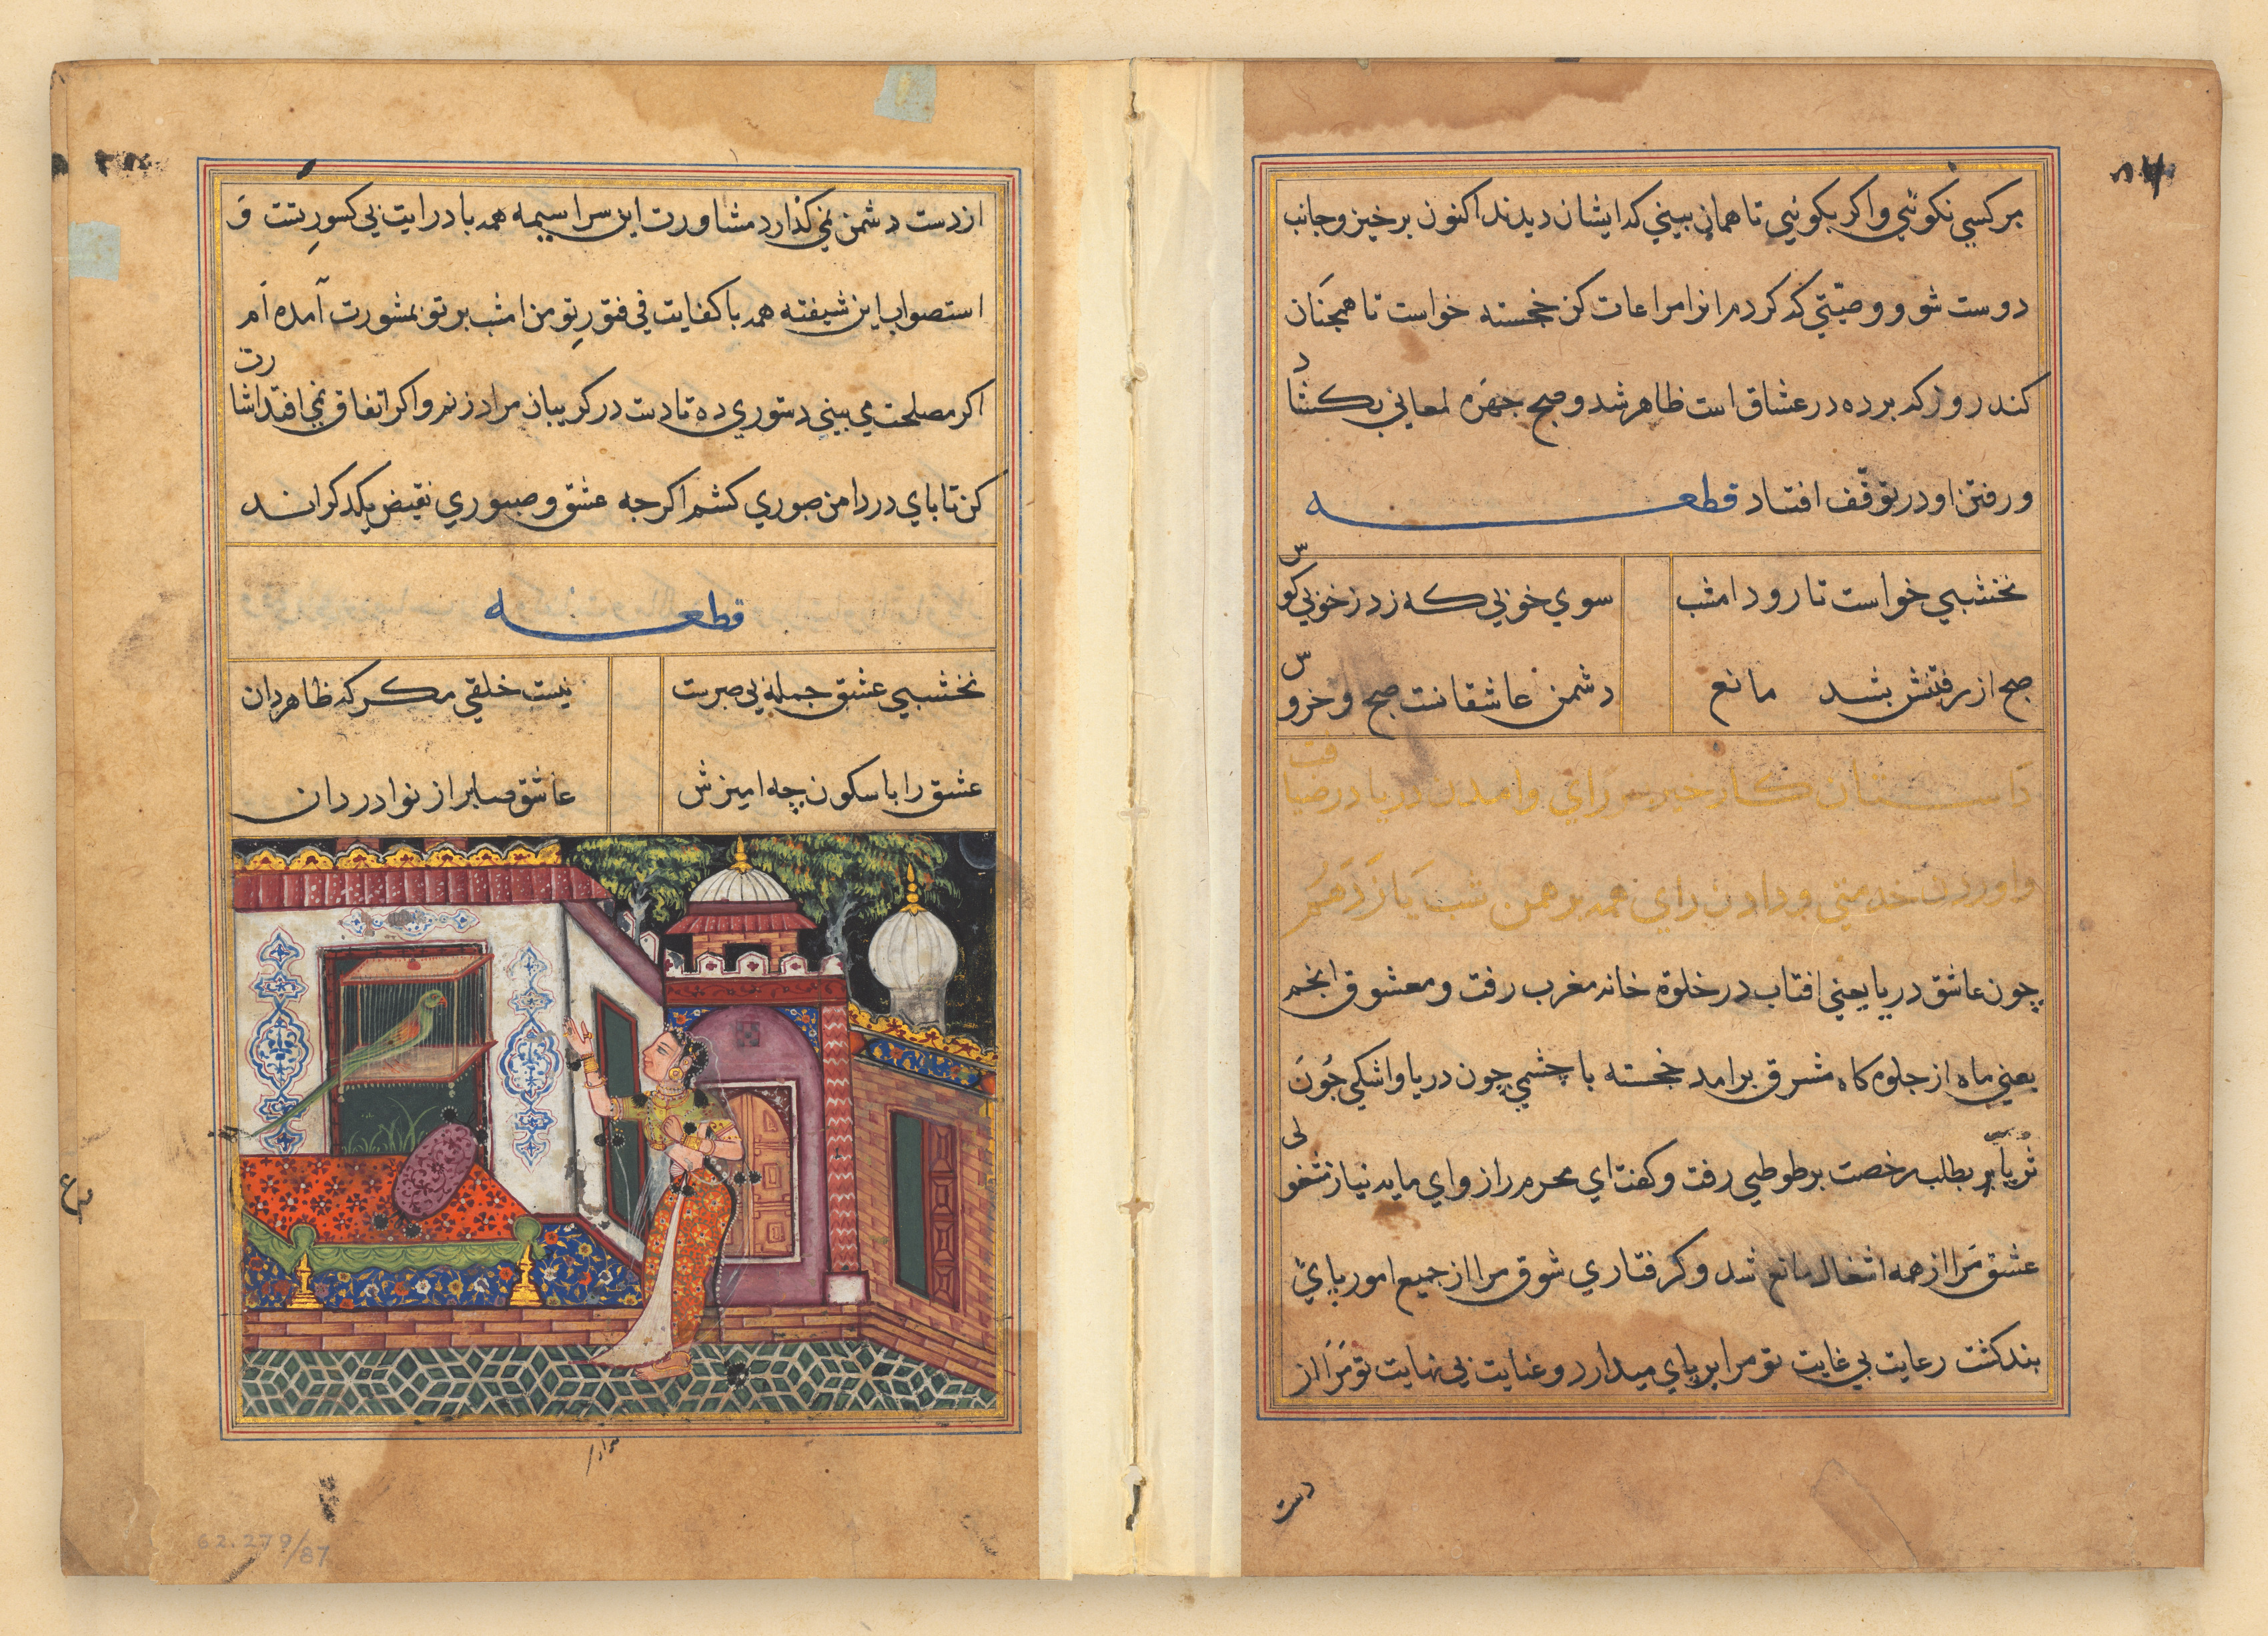 بر کسی نکوئی و اکر بکوئیی تا همان بینی که ایشان دیدند اکنون برخیز و جانب
دوست شو و وصیّتی که کردم انرا مراعات کن خجسته خواست تا همچنان
کند روز که برده در عشاق است ظاهر شد و صبح چهره لمعانی بکشاد
و رفتن او در توقّف افتاد قطعه
نخشبی خواست تا رود امشب سوی خوبی که زد ز خوبی کوس
صبح از رفتنش بشد مانع دشمن عاشقانست صبح و خروس
داستان رای و امدن دریا در ضیافت
و اوردن خدمتی و دادن رای همه برهمن شب یازدهم
چون عاشق دریا یعنی افتاب در خلوة خانه مغرب رفت و معشوق انجم
یعنی ماه از جلوه کاه مشرق برامد خجسته با چشمی چون دریا و اشکی چون
ثریا بطلب رخصت بر طوطی رفت و کفت ای محرم راز و ای مایه نیاز شغولی
عشق مرا از همه اشغال مانع شد و کرفتاری شوق مرا از جمیع امور پای
بند کشت رعایت بی غایت تو مرا بر پای میدارد و عنایت بی نهایت تو مرا از
دست
از دست دشمن نمی کذارد مشاورت این سراسیمه همه با درایت بی کسور تست و
استصواب این شیفته همه با کفایت فی فتور تو من امشب بر تو بمشورت آمده ام
اکر مصلحت می بینی دستوری ده تا دست در کریبان مراد زنم و اکر اتفاق نمی افتد اشارت
کن تا پای در دامن صبوری کشم اکرچه عشق و صبوری نقیض یکدکراند
قطعه
نخشبی عشق جمله بی صبرست نیست خلقی مکر که ظاهر دان
عشق را با سکون چه امیزش عاشق صابر از نوادر دان
62.279/87